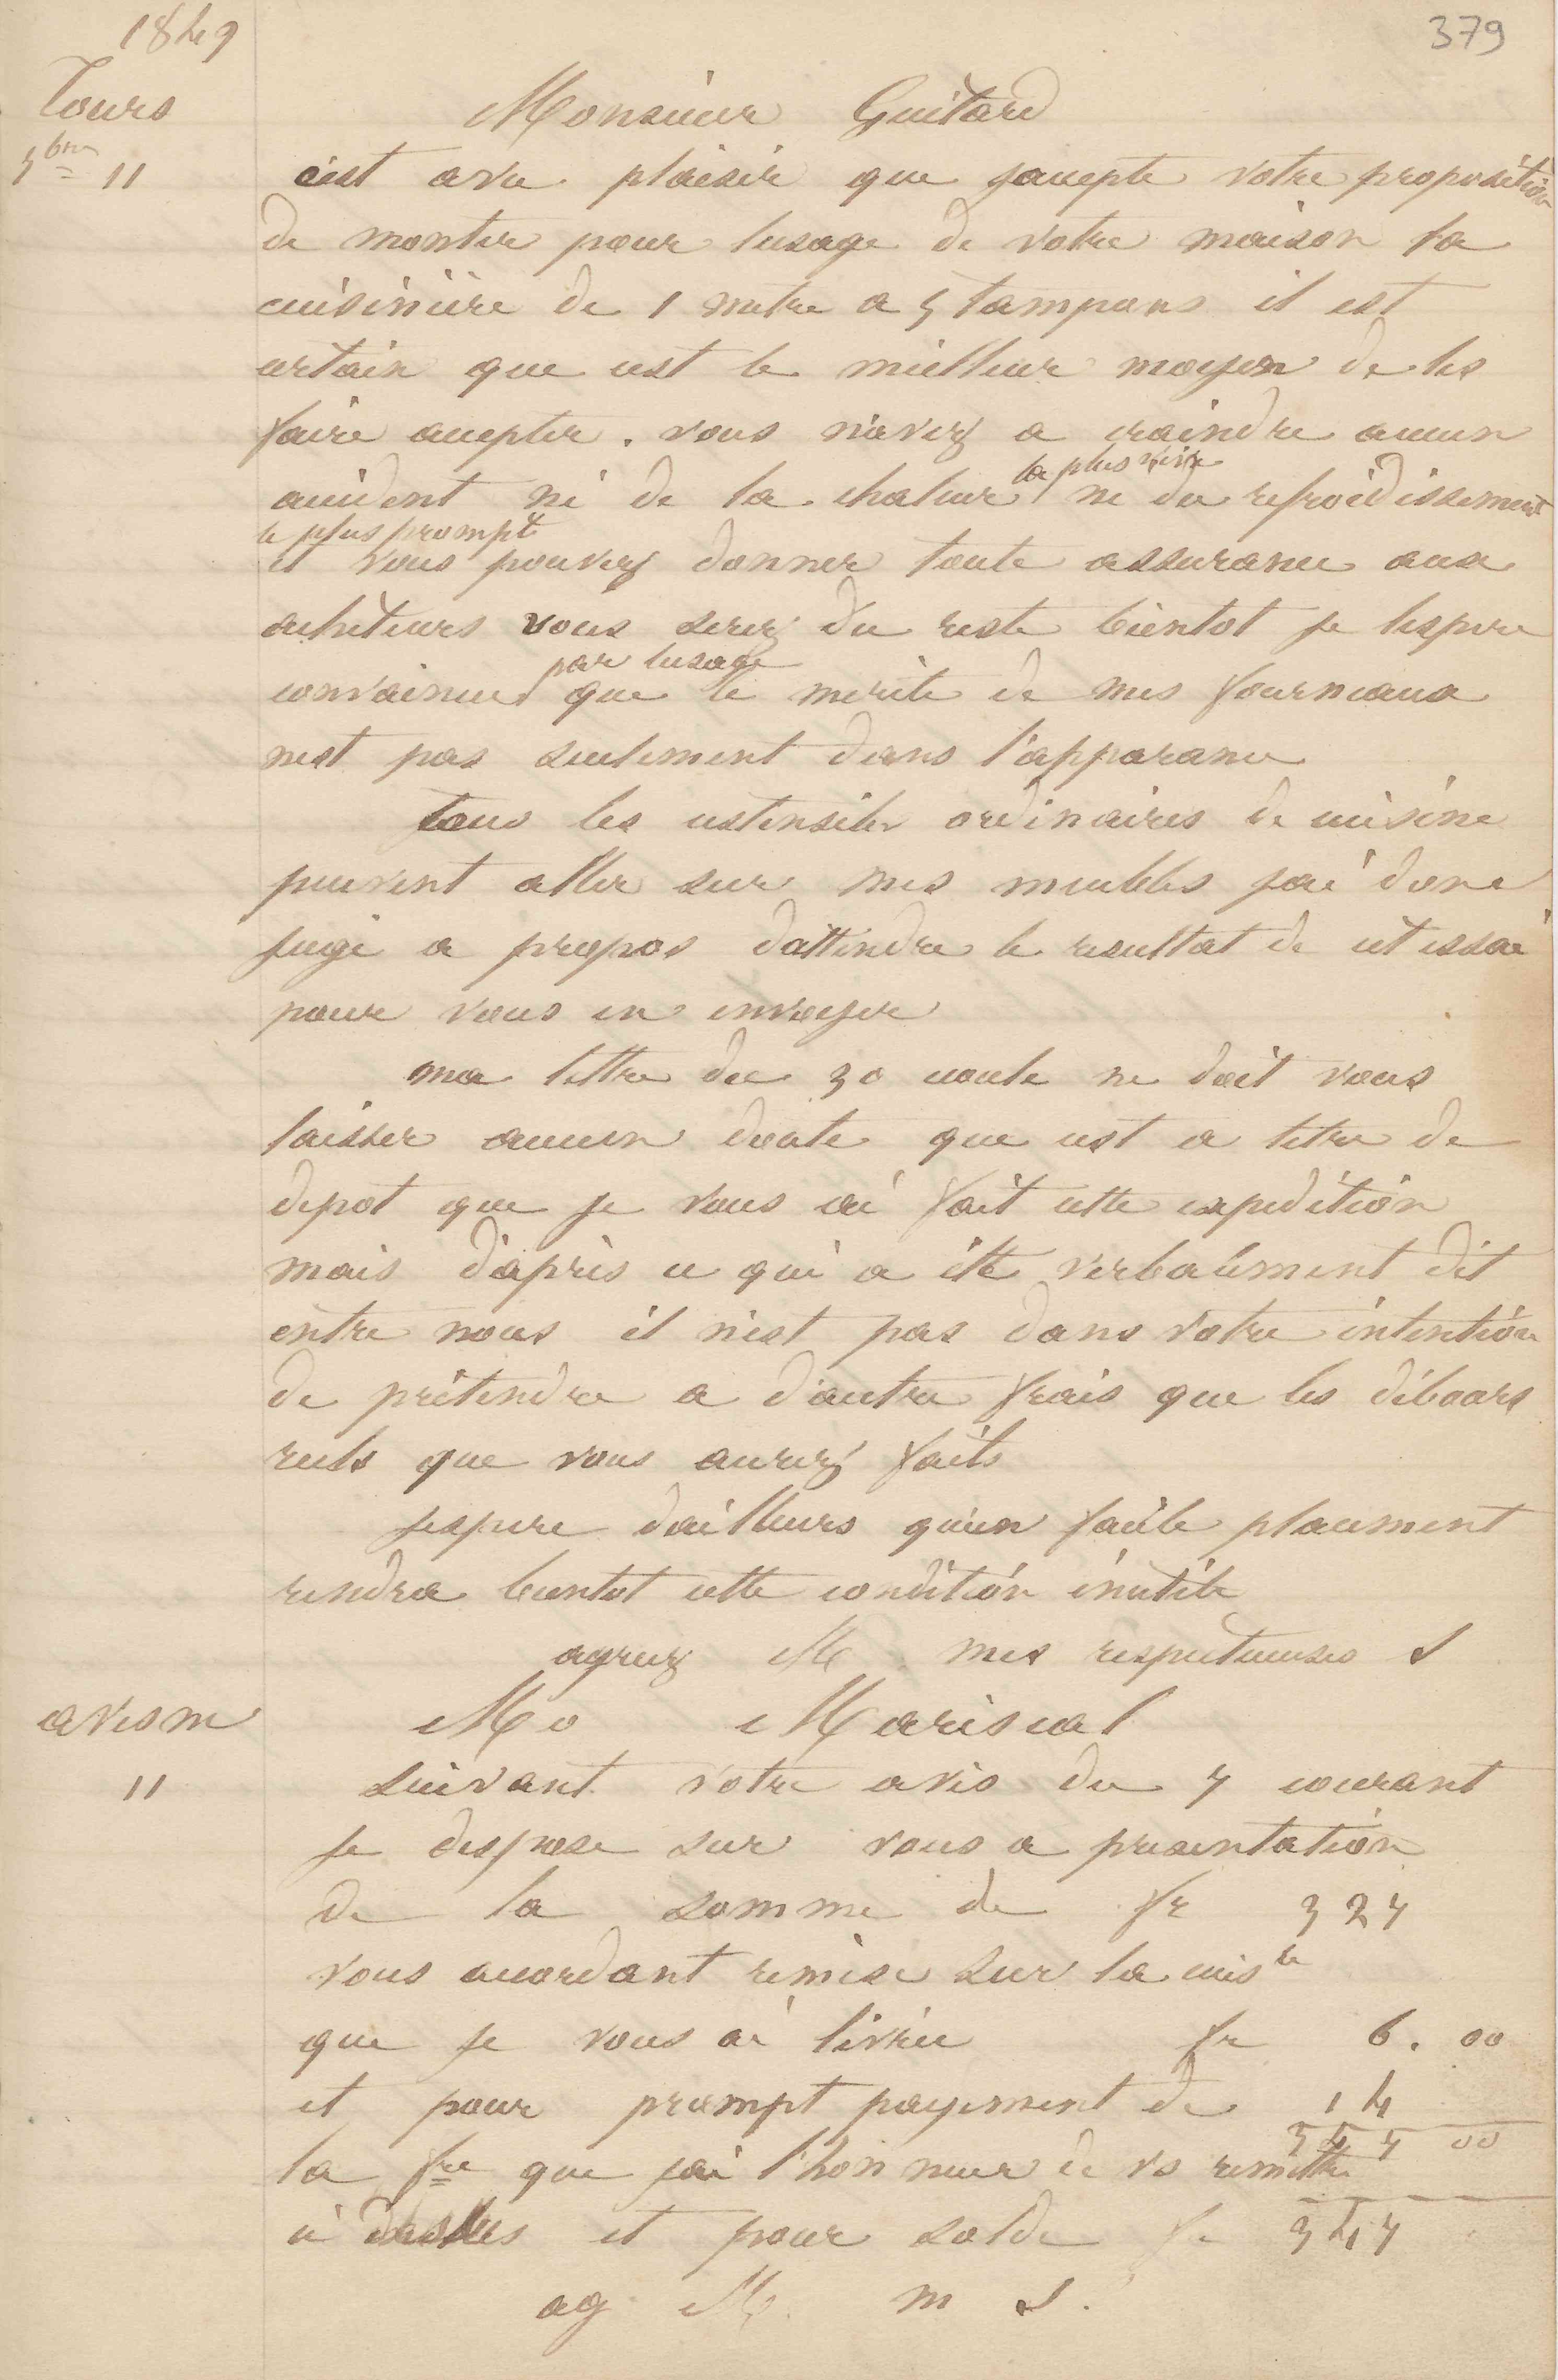 1849
379
Tours
Monsieur Guitard
7bre 11
cest avec plaisir que jaccepte votre proposition
de monter pour lusage de votre maison la
cuisinière de 1 metre a 5 tampons il est
certain que cest le meilleur moyen de les
faire accepter. vous n'avez a craindre aucun
la plus vive
accident ni de la chaleur ne du refroidissement
le plus prompt
et vous pouvez donner toute assurance aux
acheteurs vous serez du reste bientot je lespere
par lusage
convaincu que le merite de mes fourneaux
nest pas seulement dans l'apparance
tous les ustensiles ordinaires de cuisine
peuvent aller sur mes meubles jai donc
jugé a propos dattendre le resultat de cet essai
pour vous en envoyer
ma lettre du 30 ecoule ne doit vous
laisser aucun doute que cest a titre de
depot que je vous ai fait cette expedition
mais d'après ce qui a été verbalement dit
entre nous il n'est pas dans votre intention
de prétendre a d'autre frais que les débours
reels que vous aurez faits
jespere dailleurs qu'un facile placement
rendra bientot cette condition inutile
agreez M mes respectueuses S
avesm
Mo Mariscal
11
suivant votre avis du 7 courant
je dispose sur vous a presentation
de la somme de fr 327
vous accordant remise sur la cuisre
que je vous ai livrée fr 6.00
et pour prompt payement de 14
347 00
la fre que jai l'honneur de vs remettre
ci dessus et pour solde fr 347
ag M m S.